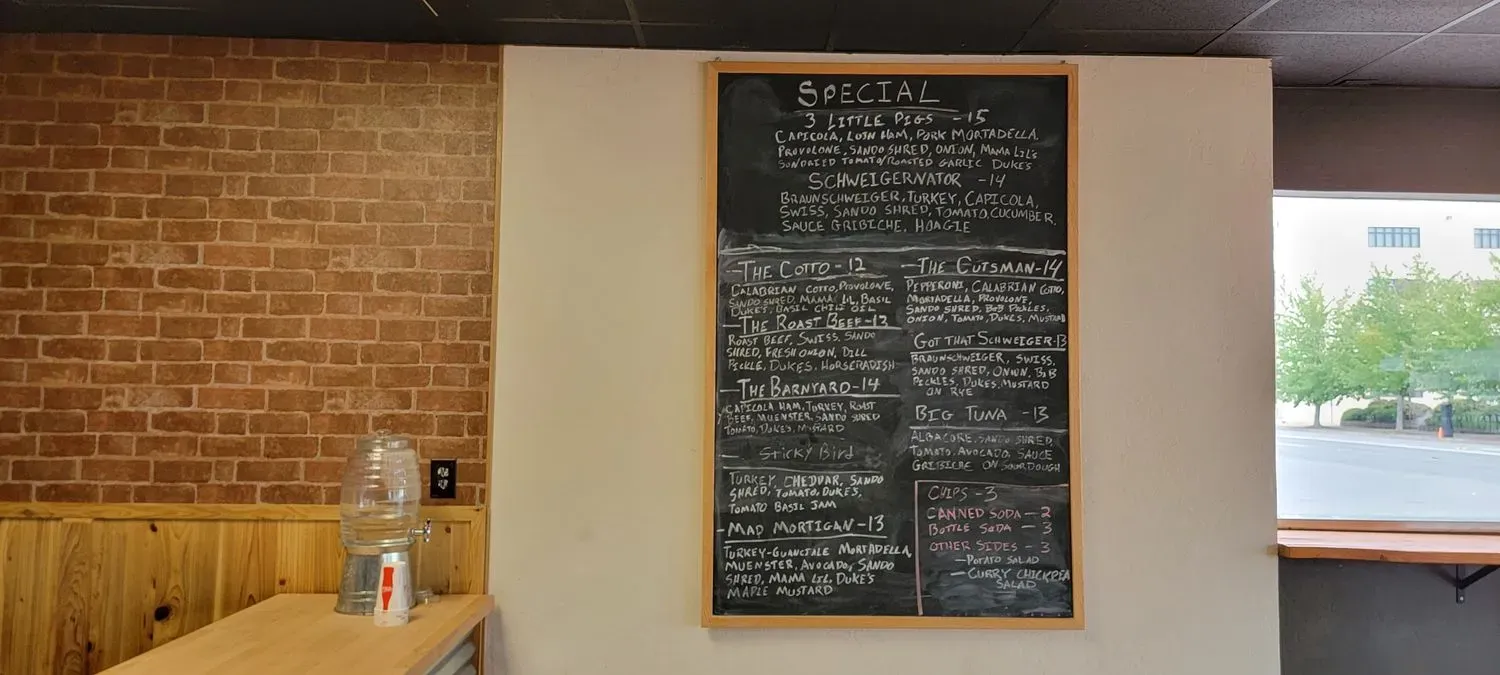 SPECIAL
3 LITTLE PIGS -15
CAPICOLA, LOIN HAM, PORK MORTADELLA,
PROVOLONE, SANDO SHRED, ONION, MAMA LIL's
SUNDRIED TOMATO/ROASTED GARLIC DUKE'S
SCHWEIGERNATOR -14
BRAUNSCHWEIGER, TURKEY, CAPICOLA,
SWISS, SANDO SHRED, TOMATO, CUCUMBER,
SAUCE GRIBICHE, HOAGIE
—THE COTTO - 12
CALABRIAN COTTO, PROVOLONE,
SANDO SHRED, MAMA LIL, BASIL
DUKE'S, BASIL CHILI OIL
—THE ROAST BEEF-13
ROAST BEEF, SWISS, SANDO
SHRED, FRESH ONION, DILL
PICKLE, DUKES, HORSERADISH
—THE BARNYARD-14
CAPICOLA HAM, TURKEY, ROAST
BEEF, MUENSTER, SANDO SHRED
TOMATO, DUKE'S, MUSTARD
— Sticky Bird
TURKEY, CHEDDAR, SANDO
SHRED, TOMATO, DUKE'S,
TOMATO BASIL JAM
-MAD MORTIGAN-13
TURKEY-GUANCIALE MORTADELLA,
MUENSTER, AVOCADO, SANDO
SHRED, MAMA LIL, DUKE'S
MAPLE MUSTARD
—THE GUTSMAN-14
PEPPERONI, CALABRIAN COTTO,
MORTADELLA, PROVOLONE,
SANDO SHRED, B&B PICKLES,
ONION, TOMATO, DUKES, MUSTARD
GOT THAT SCHWEIGER-13
BRAUNSCHWEIGER, SWISS,
SANDO SHRED, ONION, B&B
PICKLES, DUKES, MUSTARD
ON RYE
BIG TUNA -13
ALBACORE, SANDO SHRED,
TOMATO, AVOCADO, SAUCE
GRIBICHE ON SOURDOUGH
CHIPS -3
CANNED SODA — 2
BOTTLE SODA — 3
OTHER SIDES - 3
—POTATO SALAD
— CURRY CHICKPEA
SALAD